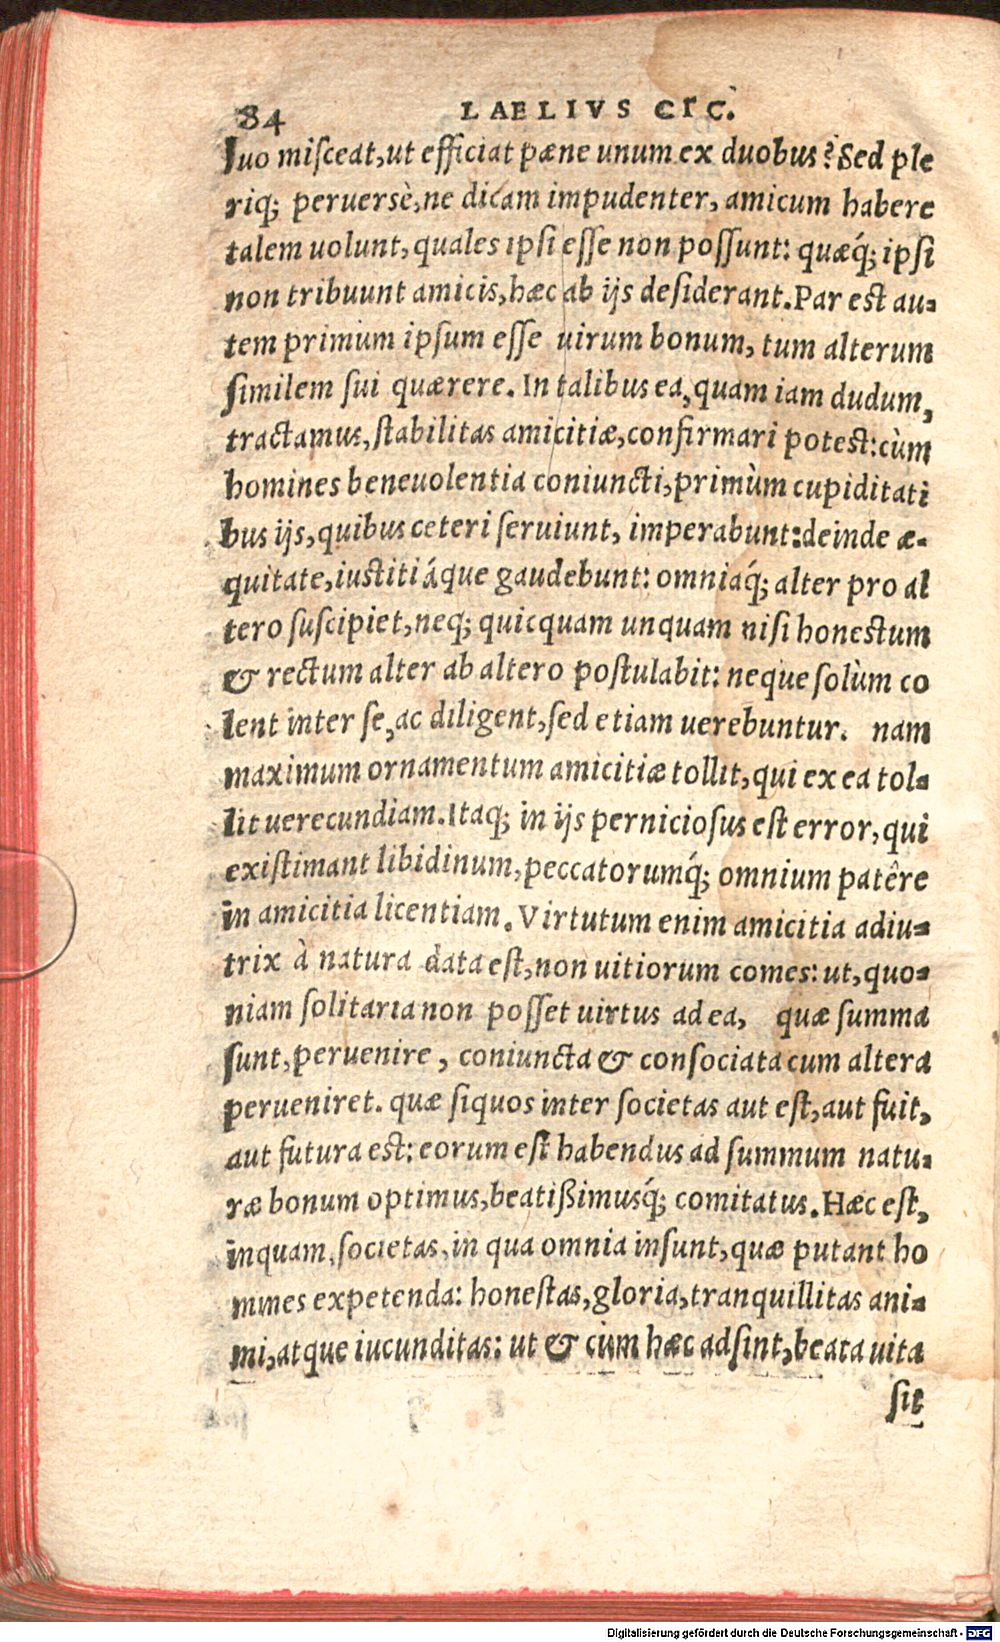 84 LAELIVS CIC.
ſuo miſceat, ut efficiat pæne unum ex duobus? Sed ple
riq; peruersè, ne dicam impudenter, amicum habere
talem uolunt, quales ipſi eſſe non poſſunt: quæq́; ipſi
non tribuunt amicis, hæc ab ijs deſiderant. Par est au-
tem primum ipſum eſſe uirum bonum, tum alterum
ſimilem ſui quærere. In talibus ea, quam iam dudum,
tractamus, ſtabilitas amicitiæ, confirmari potest: cùm
homines beneuolentia coniuncti, primùm cupiditati
bus ijs, quibus ceteri ſeruiunt, imperabunt: deinde æ-
quitate, iuſtitiáque gaudebunt: omniaq́; alter pro al
tero ſuſcipiet, neq; quicquam unquam niſi honestum
& rectum alter ab altero poſtulabit: neque ſolùm co
lent inter ſe, ac diligent, ſed etiam uerebuntur. nam
maximum ornamentum amicitiæ tollit, qui ex ea tol-
lit uerecundiam. Itaq; in ijs pernicioſus eſt error, qui
exiſtimant libidinum, peccatorumq́; omnium patêre
in amicitia licentiam. Virtutum enim amicitia adiu-
trix à natura data eſt, non uitiorum comes: ut, quo-
niam ſolitaria non poſſet uirtus ad ea, quæ ſumma
ſunt, peruenire, coniuncta & conſociata cum altera
perueniret. quæ ſiquos inter ſocietas aut eſt, aut fuit,
aut futura est: eorum eſt habendus ad ſummum natu-
ræ bonum optimus, beatißimusq́; comitatus. Hæc eſt,
inquam, ſocietas, in qua omnia inſunt, quæ putant ho
mines expetenda: honeſtas, gloria, tranquillitas ani-
mi, atque iucunditas: ut & cùm hæc adſint, beata uita
ſit
Digitalisierung gefördert durch die Deutsche Forschungsgemeinschaft - DFG